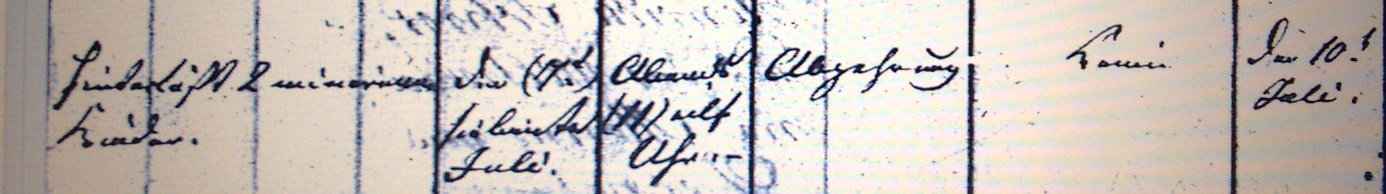 hinterläßt 2 minorenne
Kinder.
den (7.t)
siebente
Juli.
Abends
(11) eilf
Uhr.
Abzehrung
Keinen
Den 10.t
Juli.